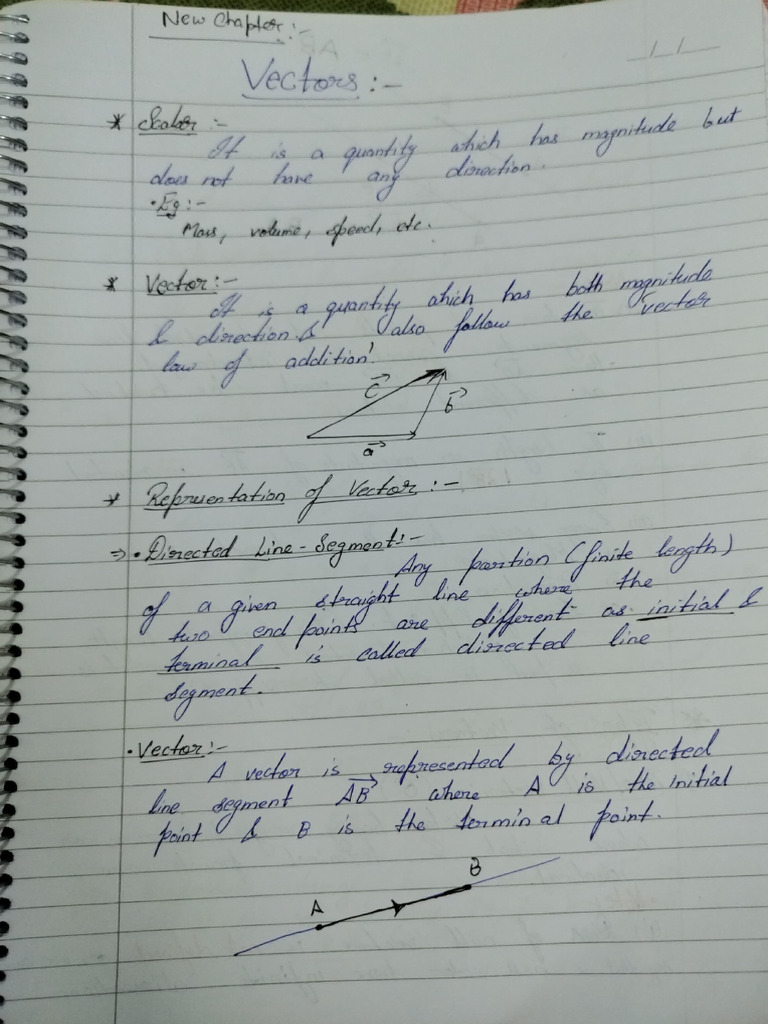 New Chapter:-
Vectors:-
* Scalar:-
It is a quantity which has magnitude but
does not have any direction.
• Eg:-
Mass, volume, speed, etc.
* Vector:-
It is a quantity which has both magnitude
& direction & also follow the vector
law of addition!
c⃗
b⃗
a⃗
* Representation of Vector:-
⇒ • Directed Line-Segment:-
Any partion (finite length)
of a given straight line where the
two end points are different as initial &
terminal is called directed line
segment.
• Vector:-
A vector is represented by directed
line segment A⃗B⃗ where A is the initial
point & B is the terminal point.
B
A